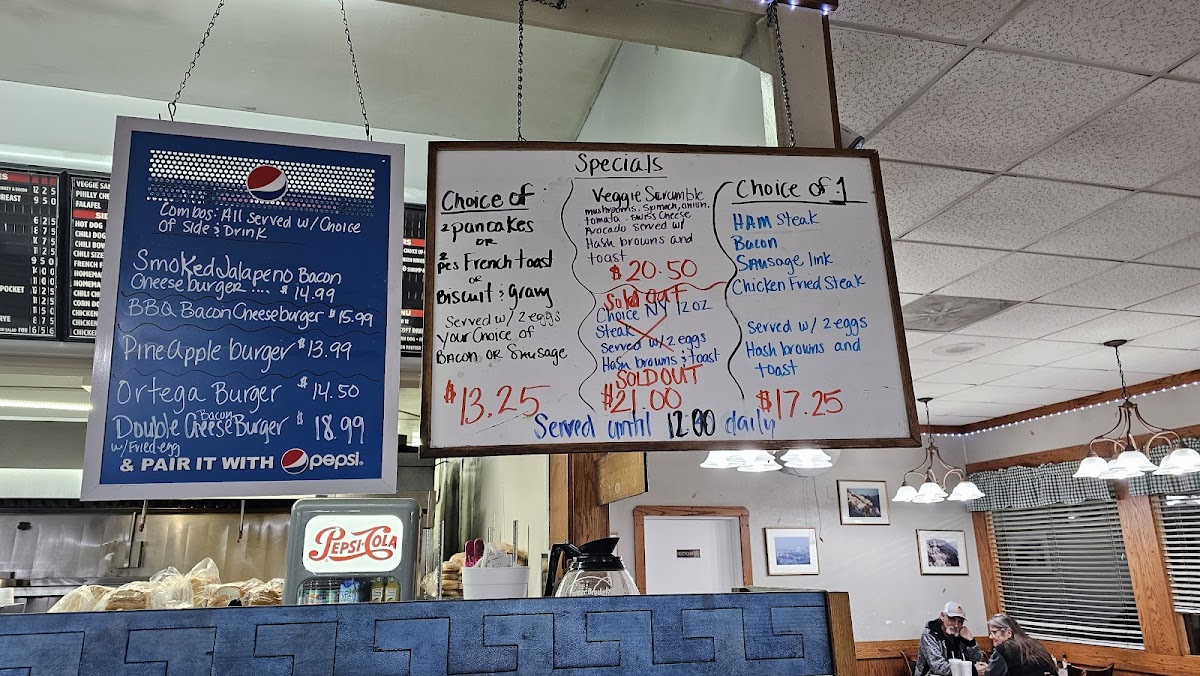 Combos: All Served w/ Choice
of side & Drink
Smoked Jalapeno Bacon
Cheeseburger .... $14.99
BBQ Bacon Cheeseburger $15.99
PineApple burger $13.99
Ortega Burger $14.50
Double Bacon CheeseBurger $18.99
w/ Fried egg
& PAIR IT WITH pepsi.
Specials
Choice of:
2 pancakes
OR
2 pcs French toast
or
Biscuit & gravy
Served w/ 2 eggs
your Choice of
BACON OR Sausage
$13.25
Veggie Scrumble
mushrooms. Spinach, onion.
tomato. Swiss Cheese
Avocado Served w/
Hash browns and
toast
$20.50
Sold out
Choice NY 12oz
Steak
Served w/ 2 eggs
Hash browns & toast
SOLD OUT
$21.00
Choice of 1
HAM Steak
Bacon
Sausage link
Chicken Fried Steak
Served w/ 2 eggs
Hash browns and
toast
$17.25
Served until 12:00 daily
VEGGIE
PHILLY
FALAFEL
HOT DOG
CHILI DOG
CHILI BOWL
CHILI SIZE
PEPSI-COLA